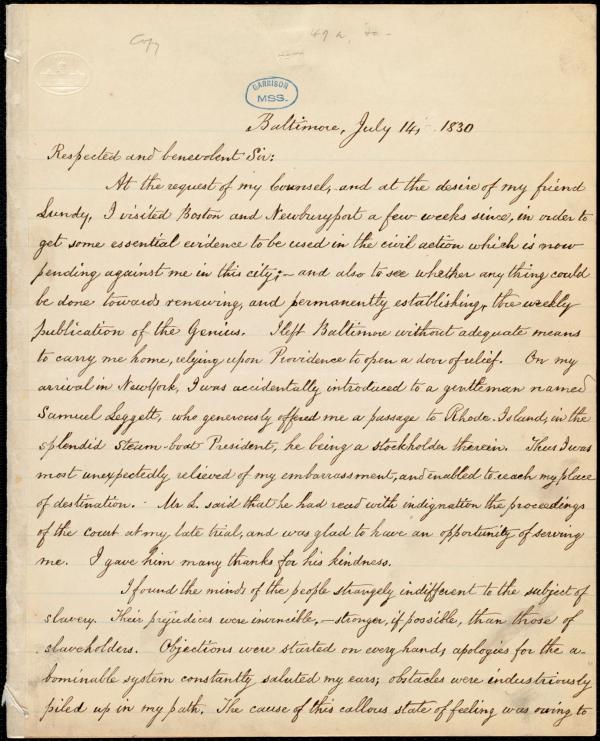 Copy
49 a,
GARRISON
MSS.
Baltimore, July 14, 1830
Respected and benevolent Sir:
At the request of my Counsel, and at the desire of my friend
Lundy, I visited Boston and Newburyport a few weeks since, in order to
get some essential evidence to be used in the civil action which is now
pending against me in this city;— and also to see whether any thing could
be done towards renewing, and permanently establishing, the weekly
publication of the Genius. I left Baltimore without adequate means
to carry me home, relying upon Providence to open a door of relief. On my
arrival in New York, I was accidentally introduced to a gentleman named
Samuel Leggett, who generously offered me a passage to Rhode-Island, in the
splendid Steam-boat President, he being a stockholder therein. Thus I was
most unexpectedly relieved of my embarrassment, and enabled to reach my place
of destination. Mr L. said that he had read with indignation the proceedings
of the court at my late trial, and was glad to have an opportunity of serving
me. I gave him many thanks for his kindness.
I found the minds of the people strangely indifferent to the subject of
slavery. Their prejudices were invincible,—stronger, if possible, than those of
slaveholders. Objections were started on every hand; apologies for the a-
bominable system constantly saluted my ears; obstacles were industriously
piled up in my path. The cause of this callous state of feeling was owing to